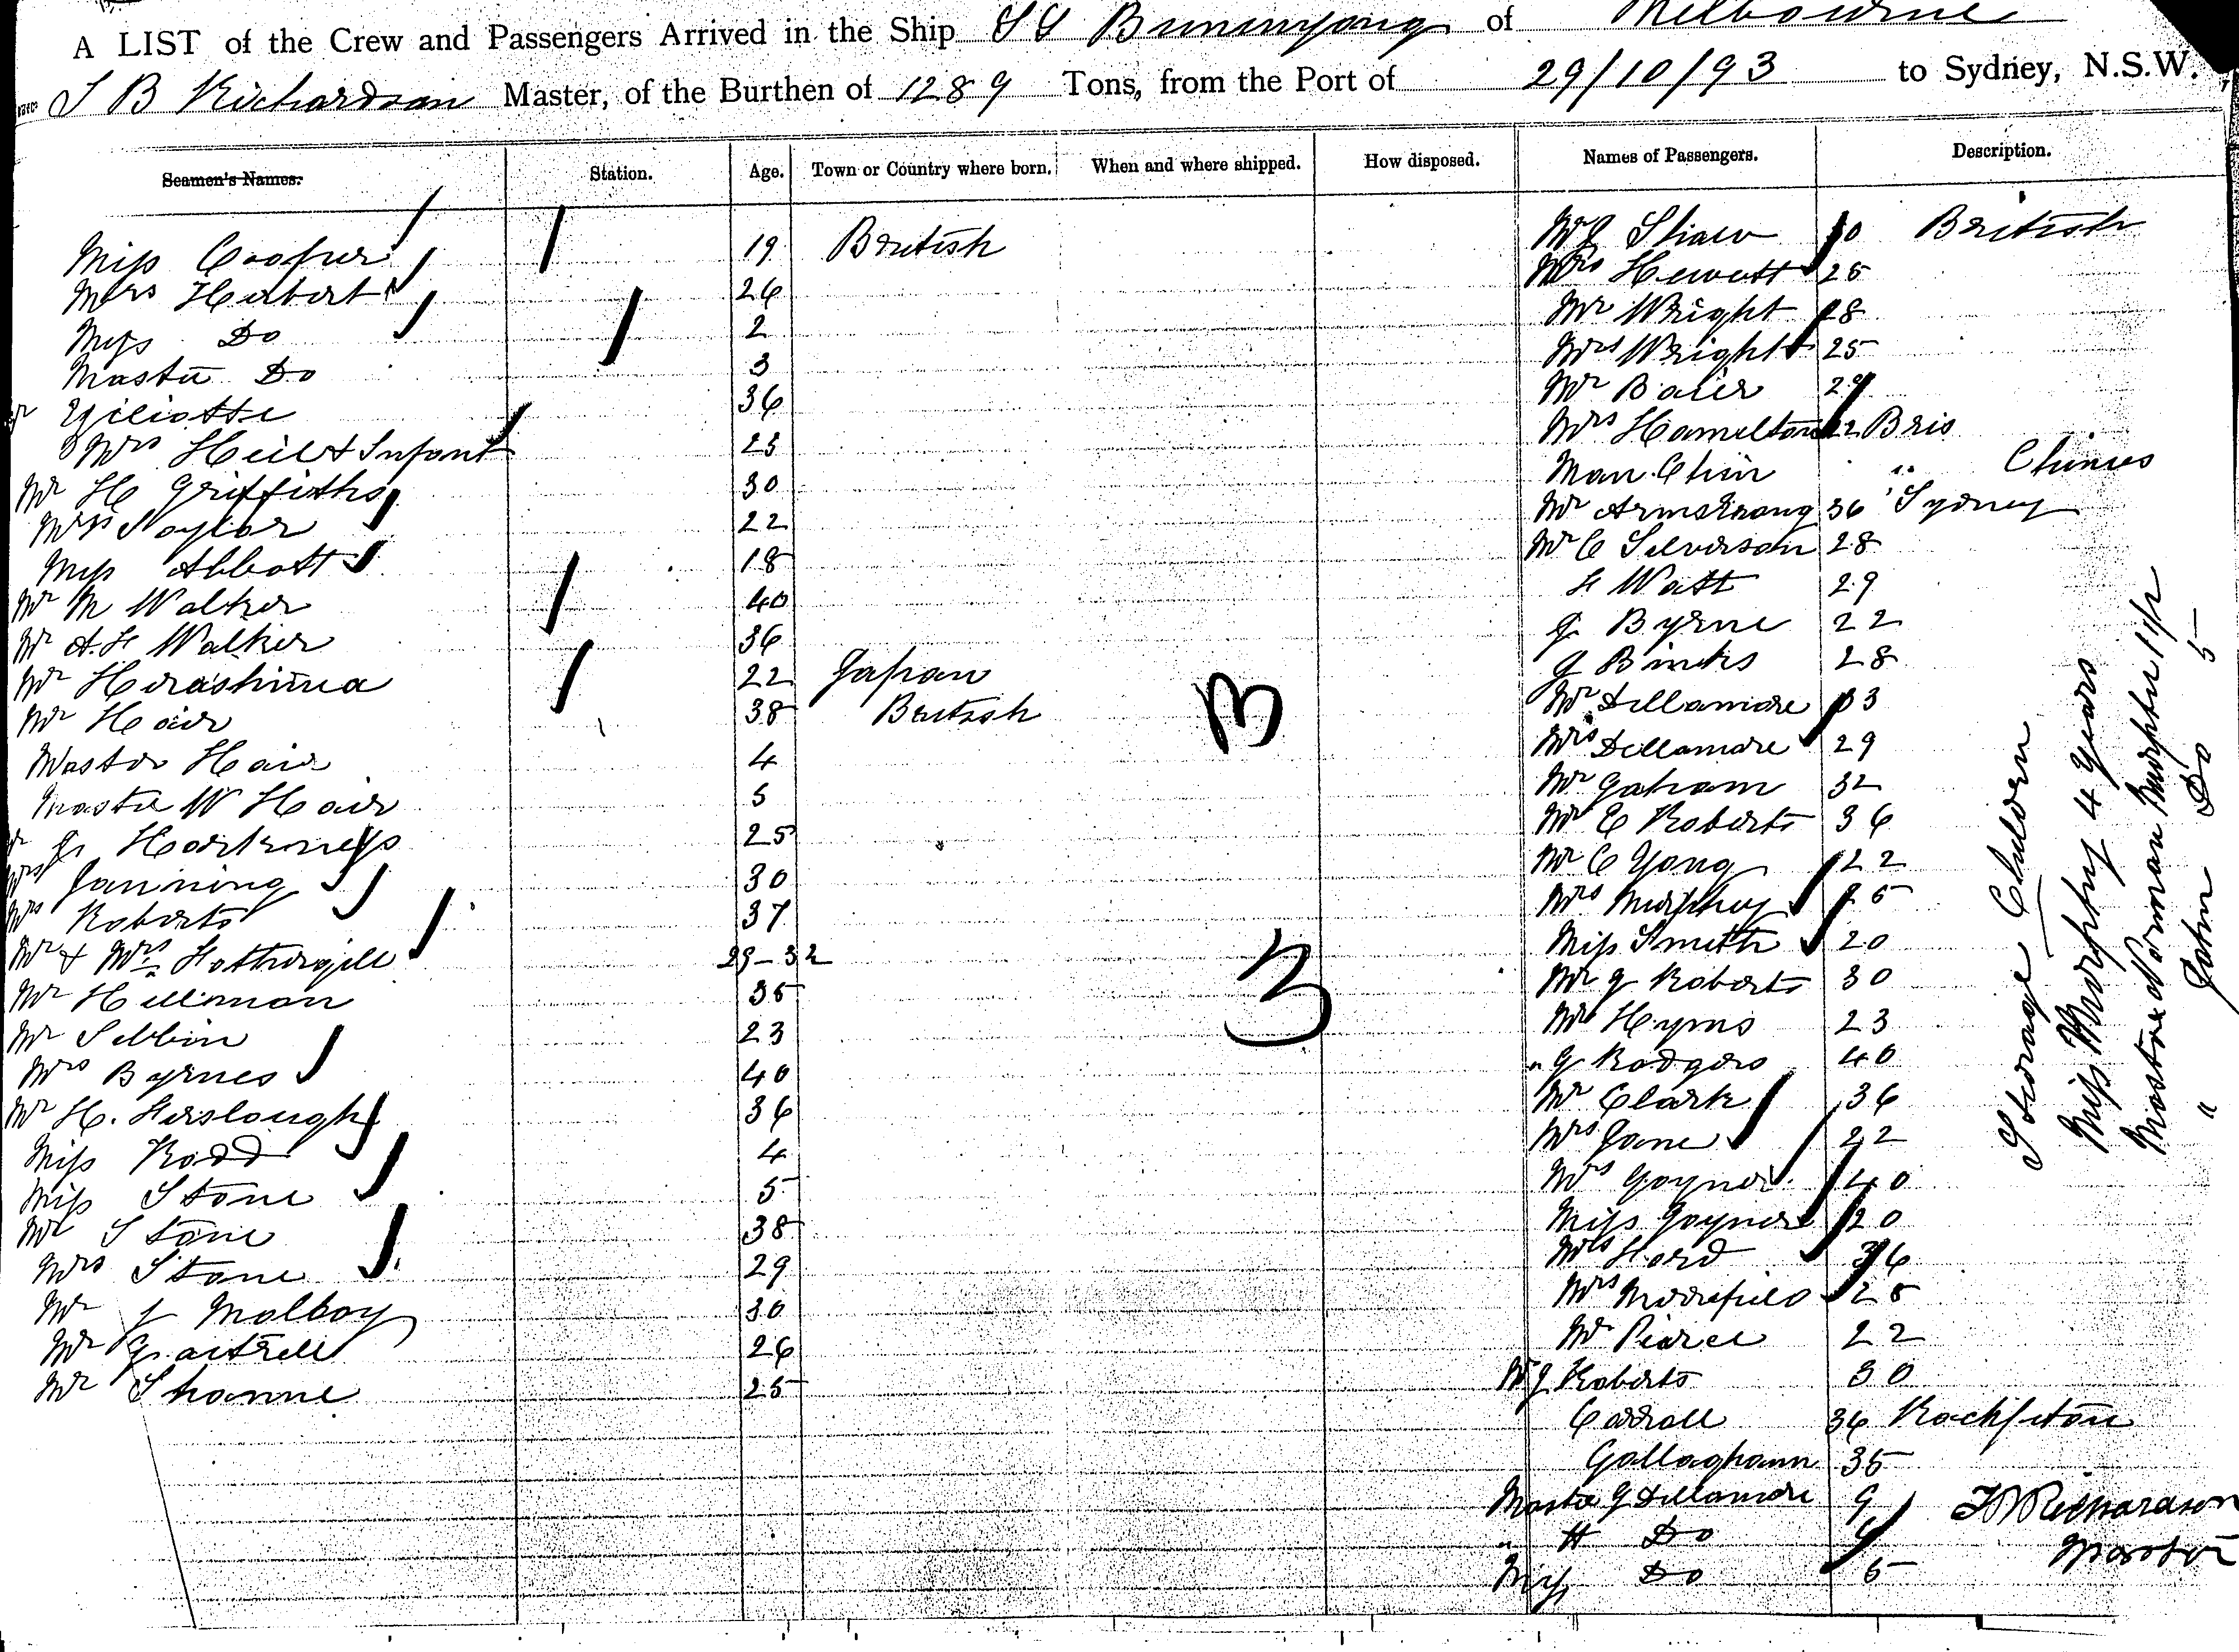 A LIST of the Crew and Passengers Arrived in the Ship SS Buninyong of Melbourne
S B Richardson Master, of the Burthen of 1289 Tons, from the Port of 29/10/93 to Sydney, N.S.W.
Seamen's Names. Station. Age. Town or Country where born. When and where shipped. How disposed. Names of Passengers. Description.
Miss Cooper 19 British
Mrs Herbert 26
Miss Do 2
Master Do 3
36
Mrs Heil & Infant 23
Mr H Griffiths 30
Mrs Naylor 22
Miss Abbott 18
Mr M Walker 40
Mr A. F Walker 36
Mr Hirashima 22 Japan
Mr Hair 38 British
Master Hair 4
Master W Hair 5
G Harkness 25
Mrs Janning 30
Mrs Roberts 37
Mr & Mrs Fothergill 29-32
Mr Hillman 35
Mr Sibbin 23
Mrs Byrnes 40
Mr H. Hirslough 36
Miss Rodd 4
Miss Stone 5
Mr Stone 38
Mrs Stone 29
Mr J Malboy 30
Mr Gartrell 26
Mr Shanne 25
B
3
Shaw 30 British
Mrs Hewett 25
Mr Wright 28
Mrs Wright 25
Mr Baier 29
Mrs Hamelton 22 Bris
Man Chin " Chines
Mr Armstrong 36 Sydney
Mr C Silverson 28
F Watt 29
J Byrne 22
J Binks 28
Mr Dellamore 33
Mrs Dellamore 29
Mr Gaham 32
Mr E Roberts 36
Mr C Yong 22
Mrs Murphy 25
Miss Smith 20
Mr J Roberts 30
Mr Hyms 23
" J Rodgers 40
Mr Clark 36
Mrs Jane 22
Mrs Joyner 40
Miss Joyner 20
Mrs Hord 36
Mrs Moorfield 28
Mr Pearce 22
Mr J Roberts 30
Carroll 36 Rockhpton
Gallaghann 35
Master J Dellamore 9
" H Do
Miss Do 5
Steerage Children
Miss Murphy 4 years
Master Norman Murphy
" John Do 5
Richardson
Master